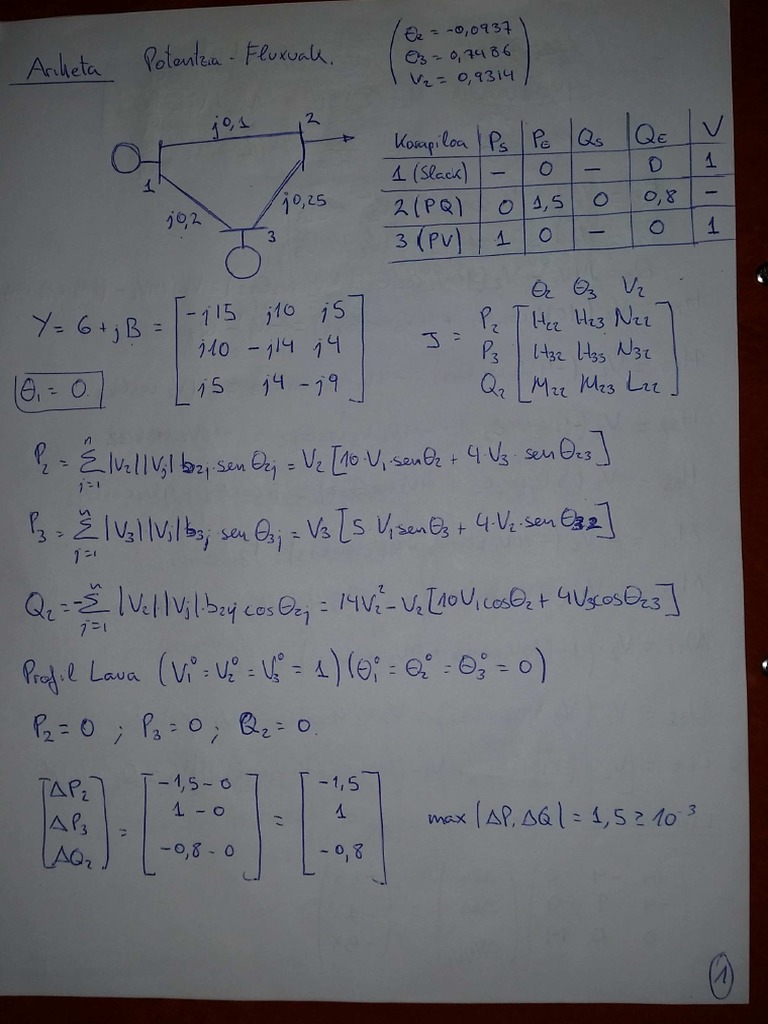 Ariketa Potentzia-Fluxuak.
(θ₂ = -0,0937
θ₃ = 0,7486
V₂ = 0,9314)
j0,1
2
1
j0,2
j0,25
3
Korapiloa | PS | PE | QS | QE | V
1 (Slack) | - | 0 | - | 0 | 1
2 (PQ) | 0 | 1,5 | 0 | 0,8 | -
3 (PV) | 1 | 0 | - | 0 | 1
Y = G + jB = [-j15 j10 j5
j10 -j14 j4
j5 j4 -j9]
θ₁ = 0.
θ₂ θ₃ V₂
J = P₂ [H₂₂ H₂₃ N₂₂
P₃ H₃₂ H₃₃ N₃₂
Q₂ M₂₂ M₂₃ L₂₂]
P₂ = Σⱼ₌₁ⁿ |V₂||Vⱼ| b₂ⱼ·sen θ₂ⱼ = V₂ [10·V₁·senθ₂ + 4·V₃·sen θ₂₃]
P₃ = Σⱼ₌₁ⁿ |V₃||Vⱼ| b₃ⱼ sen θ₃ⱼ = V₃ [5 V₁senθ₃ + 4·V₂·sen θ₃₂]
Q₂ = -Σⱼ₌₁ⁿ |V₂||Vⱼ|·b₂ⱼ cos θ₂ⱼ = 14V₂² - V₂ [10V₁cosθ₂ + 4V₃cosθ₂₃]
Profil Laua (V₁⁰ = V₂⁰ = V₃⁰ = 1) (θ₁⁰ = θ₂⁰ = θ₃⁰ = 0)
P₂ = 0 ; P₃ = 0 ; Q₂ = 0.
[ΔP₂
ΔP₃
ΔQ₂] = [-1,5 - 0
1 - 0
-0,8 - 0] = [-1,5
1
-0,8]
max |ΔP, ΔQ| = 1,5 ≥ 10⁻³
1